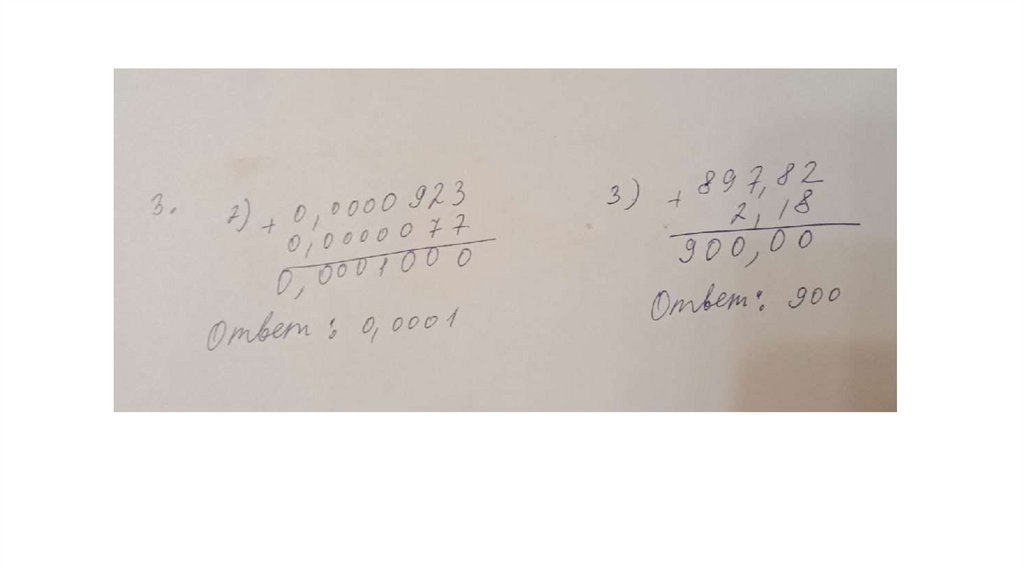 3. 2) + 0,0000923
0,0000077
0,0001000
Ответ: 0,0001
3) + 897,82
2,18
900,00
Ответ: 900